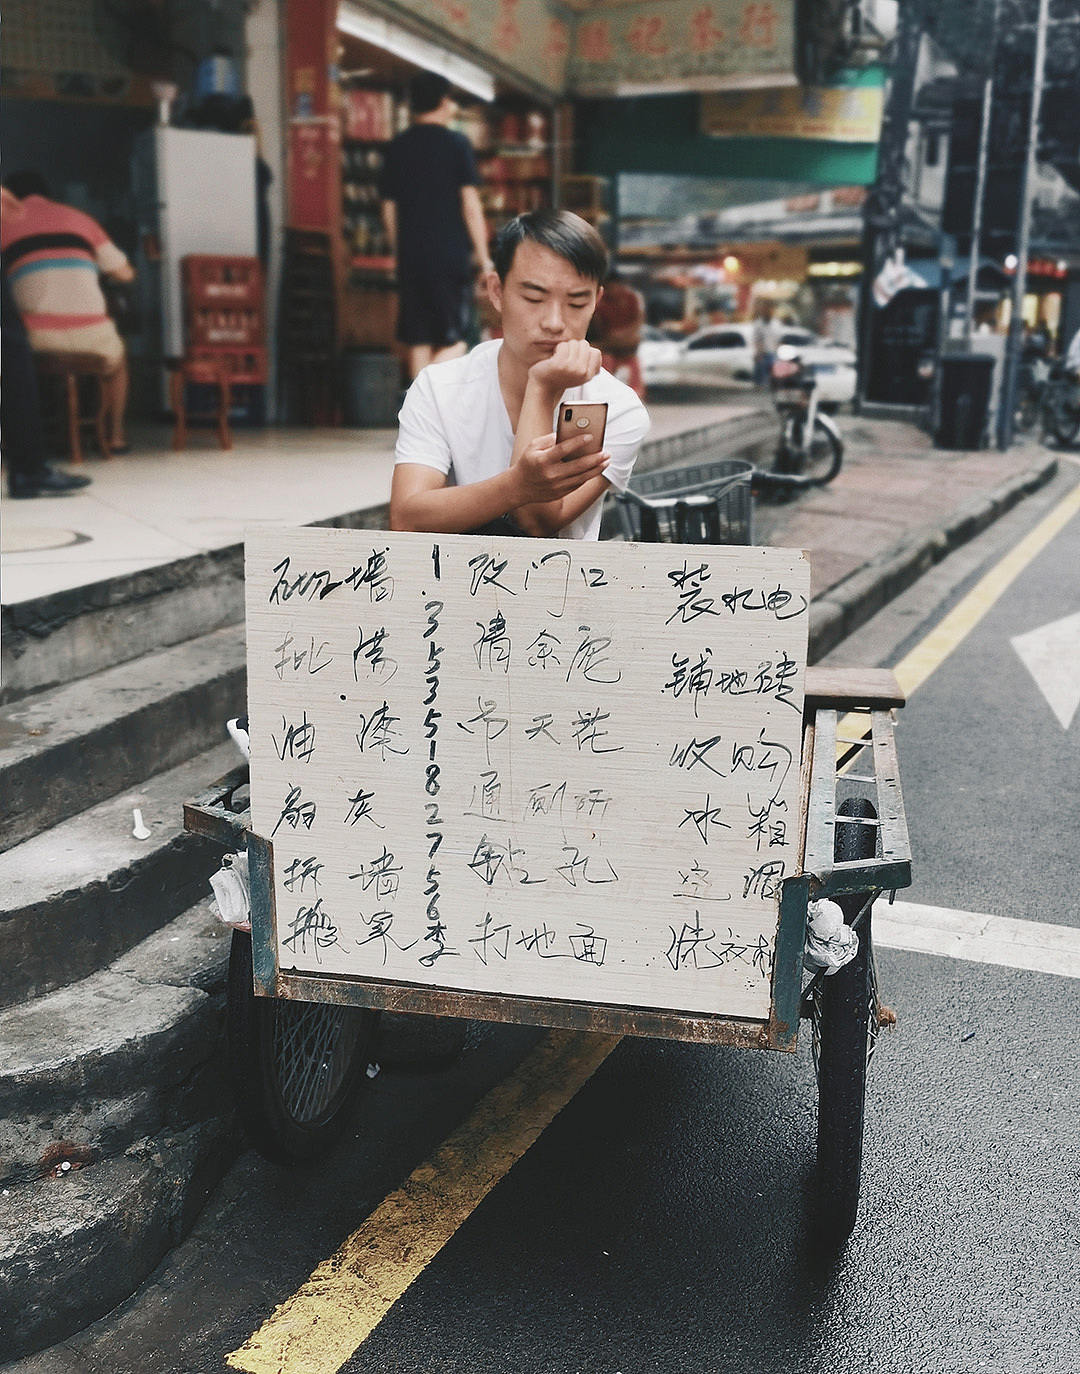 砌墙
批荡
油漆
扇灰
拆墙
搬家
13535182756李
改门口
清余
吊天花
通厕所
钻孔
打地面
装水电
铺地砖
收购
冰箱
空调
洗衣机
記茶行